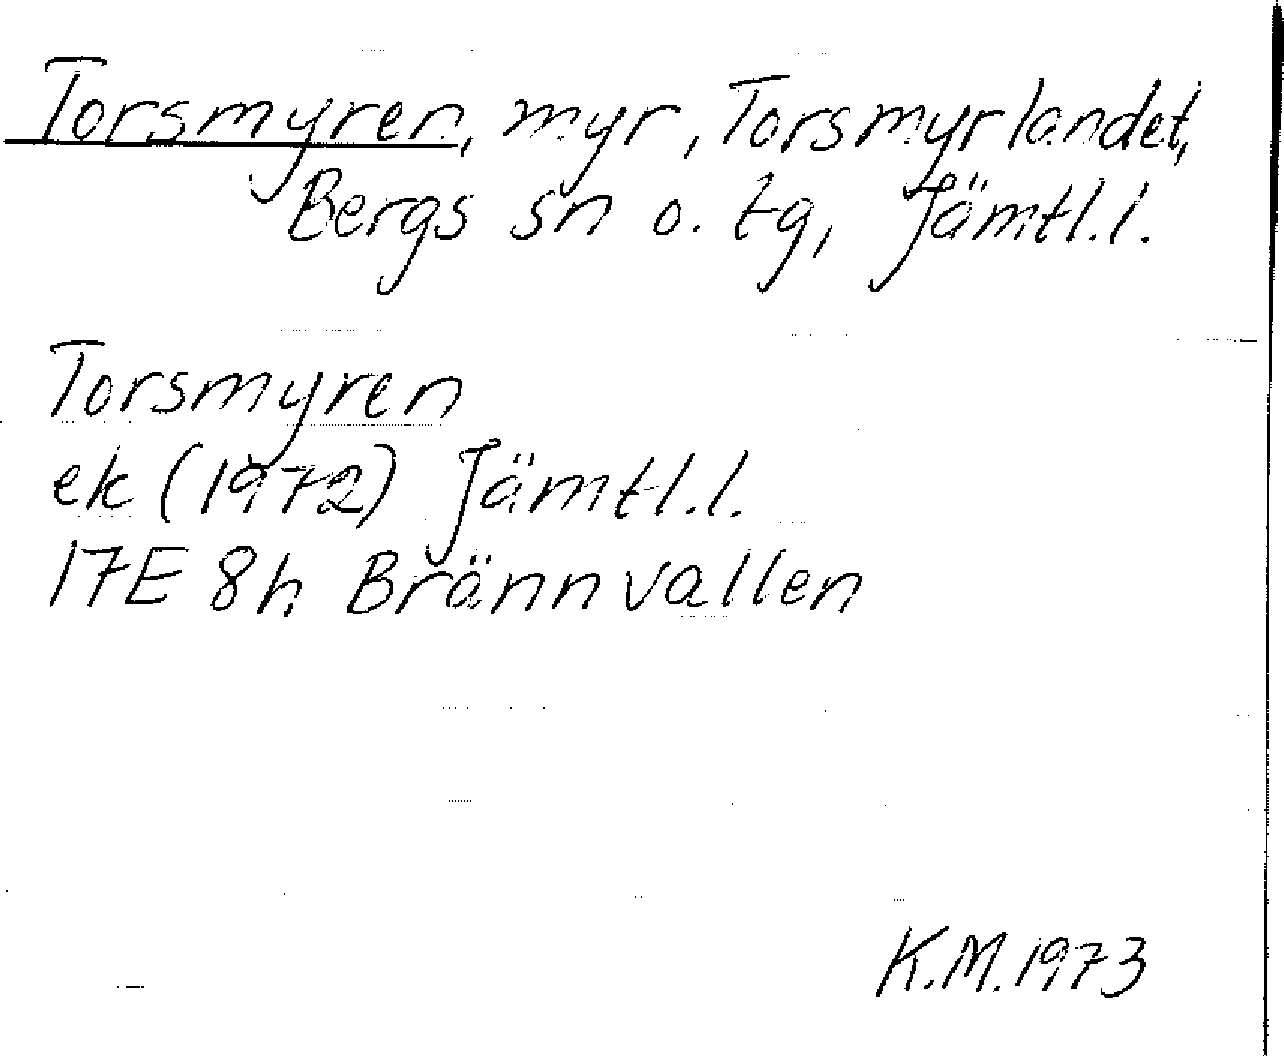 Torsmyren, myr, Torsmyrlandet,
Bergs sn o. tg, Jämtl.l.
Torsmyren
ek (1972) Jämtl.l.
17E 8h Brännvallen
K.M. 1973